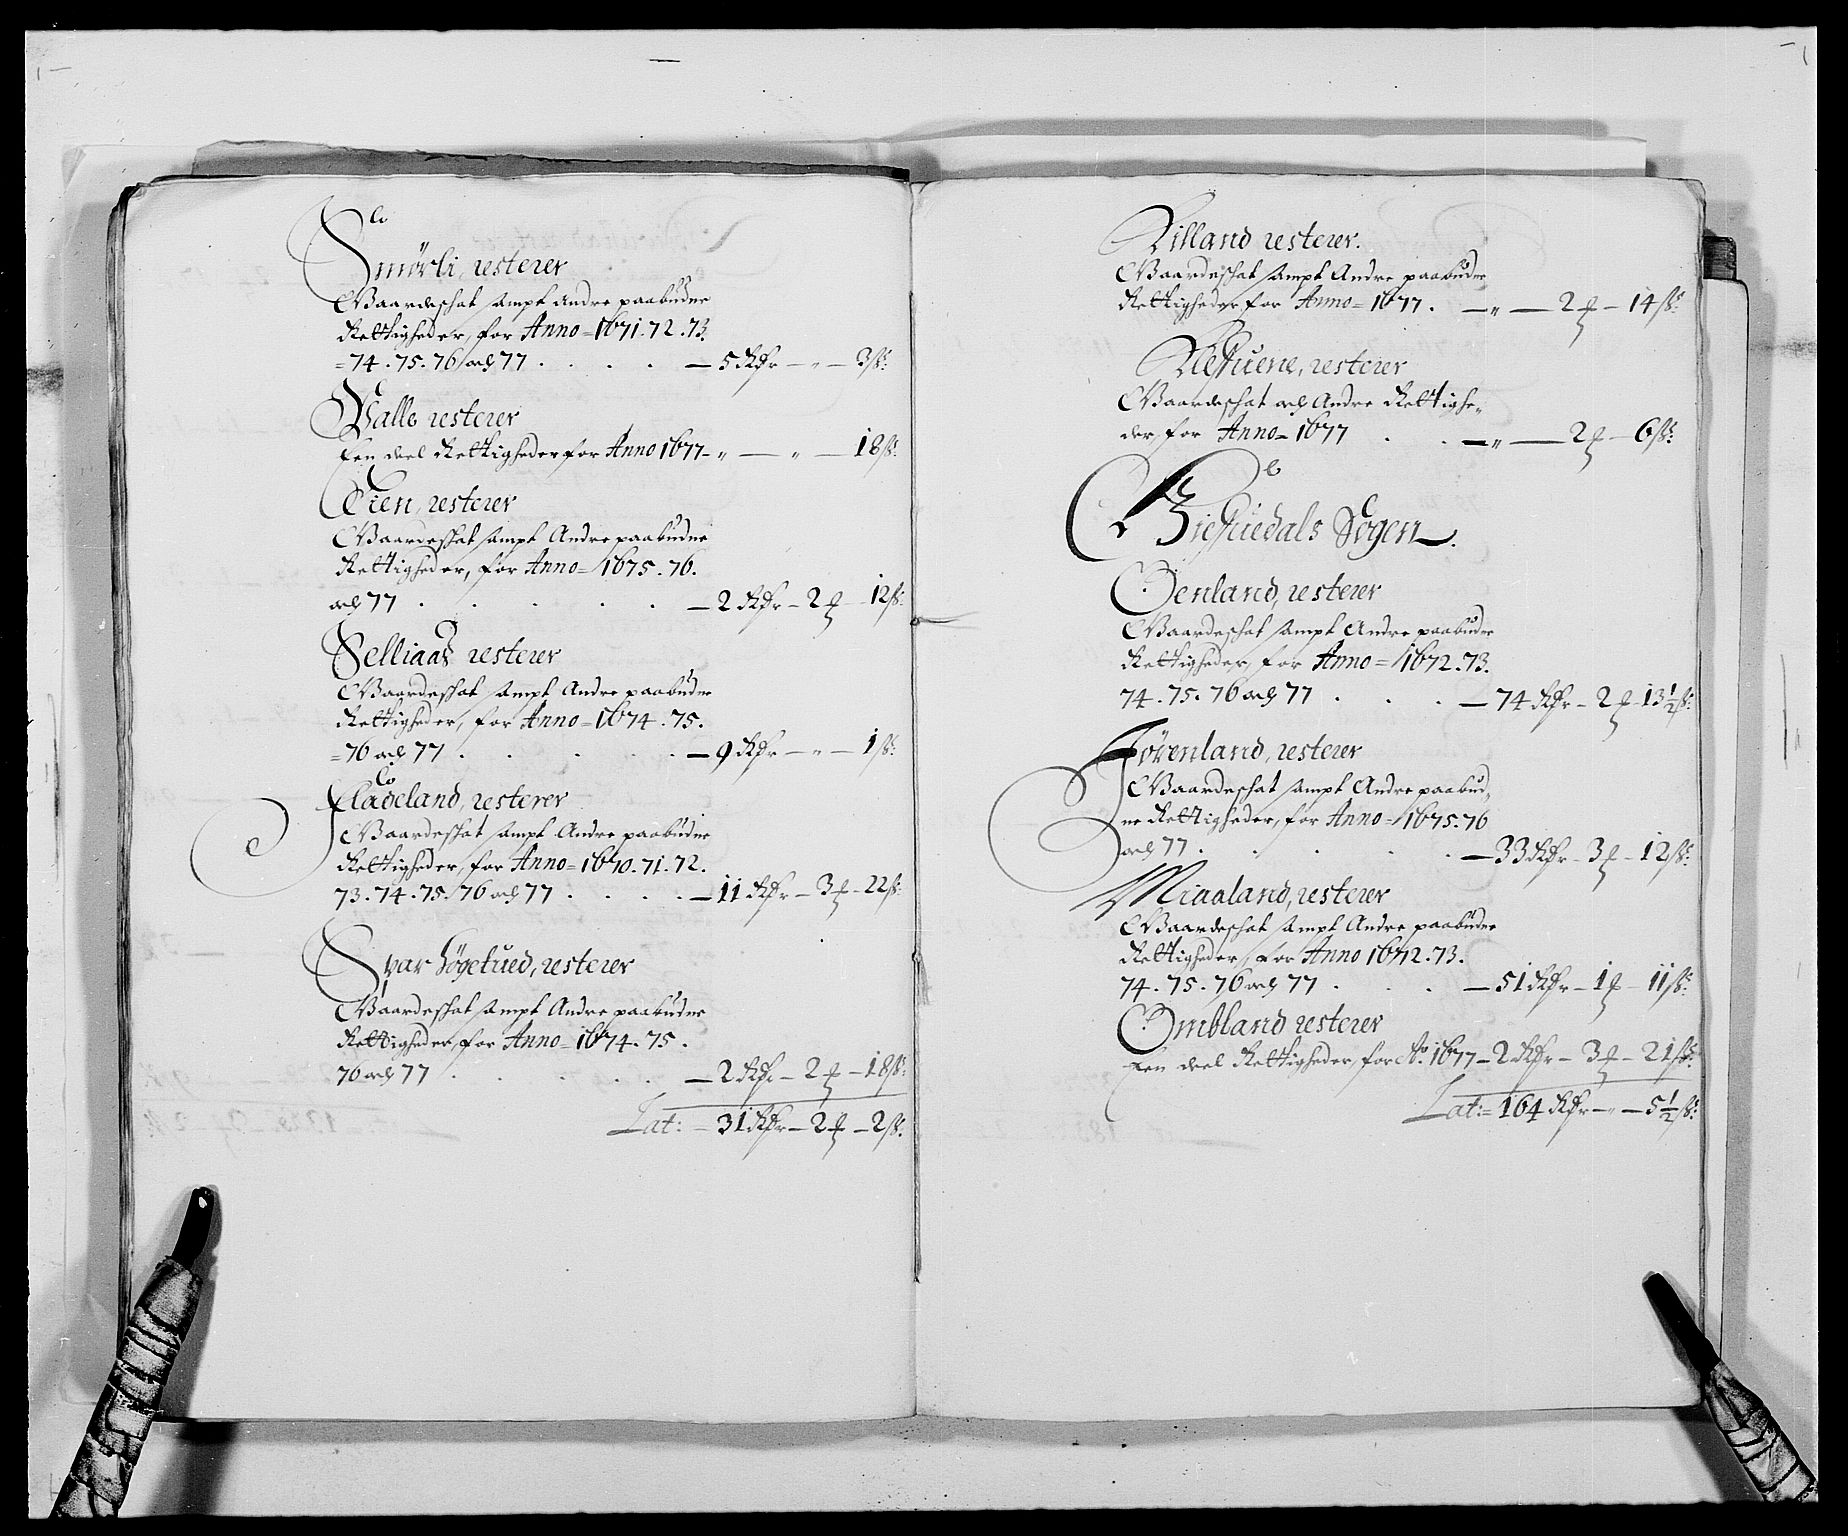 Smørli, resterer
Gaardeschat sampt Andre paabudne
Rettigheder, for Anno = 1671. 72. 73.
= 74. 75. 76 och 77 . . . . — 5 Rdr — „ — 3 ß:
Walle resterer
Een deel Rettigheder for Anno 1677 — „ — „ — 18 ß:
Eien, resterer
Gaardeschat sampt Andre paabudne
Rettigheder, for Anno = 1675. 76.
och 77 . . . . . — 2 Rdr — 2 ₰ — 12 ß:
Selliaas resterer
Gaardeschat sampt Andre paabudne
Rettigheder, for Anno = 1674. 75.
= 76 och 77 . . . . — 9 Rdr — „ — 1 ß:
Fladeland, resterer
Gaardeschat sampt Andre paabudne
Rettigheder, for Anno = 1670. 71. 72.
73. 74. 75. 76 och 77 . . . . — 11 Rdr — 3 ₰ — 22 ß:
Spar resterer
Gaardeschat sampt Andre paabudne
Rettigheder, for Anno = 1674. 75.
76 och 77 . . . . . — 2 Rdr — 2 ₰ — 18 ß:
Lat: — 31 Rdr — 2 ₰ — 2 ß.
Lilland resterer.
Gaardeschat sampt Andre paabudne
Rettigheder, for Anno = 1677. — „ — 2 ₰ — 14 ß:
resterer
Gaardeschat och Andre Rettighe„
der, for Anno = 1677 . . — „ — 2 ₰ — 6 ß:
Sogen.
Oenland, resterer
Gaardeschat sampt Andre paabudne
Rettigheder, for Anno = 1672. 73.
74. 75. 76 och 77 . . . — 74 Rdr — 2 ₰ — 13½ ß:
Förenland, resterer
Gaardeschat sampt Andre paabud„
ne Rettigheder, for Anno = 1675. 76
och 77 . . . . . — 33 Rdr — 3 ₰ — 12 ß:
Miaaland, resterer
Gaardeschat sampt Andre paabudne
Rettigheder, for Anno 1672. 73.
74. 75. 76 och 77 . . . — 51 Rdr — 1 ₰ — 11 ß:
Ombland resterer
Een deel Rettigheder, for Ao. 1677 — 2 Rdr — 3 ₰ — 21 ß:
Lat: = 164 Rdr — „ — 5½ ß: